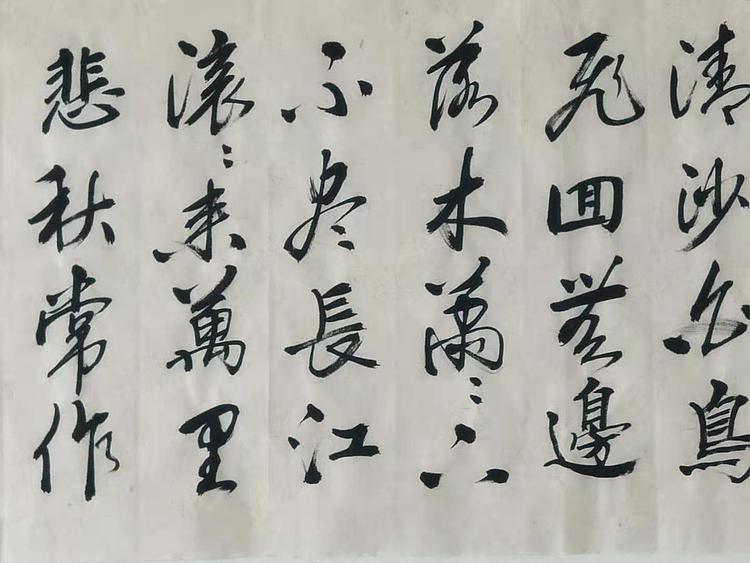 清沙白鳥
飛回無邊
落木蕭〻下
不盡長江
滾〻来萬里
悲秋常作